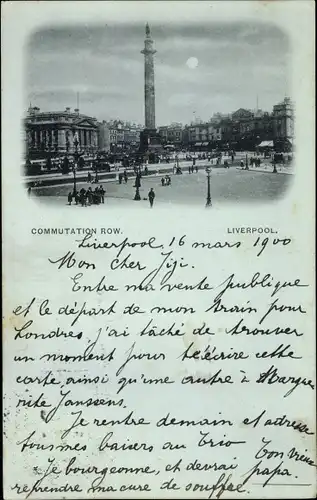 COMMUTATION ROW.
LIVERPOOL.
Liverpool, 16 mars 1900
Mon cher Jiji.
Entre ma vente publique
et le départ de mon train pour
Londres, j'ai tâché de trouver
un moment pour t'écrire cette
carte, ainsi qu'une autre à Margue-
rite Janssens.
Je rentre demain et adresse
tous mes baisers au Trio
Ton vieux
papa.
Je bourgeonne, et devrai
reprendre ma cure de soufre.